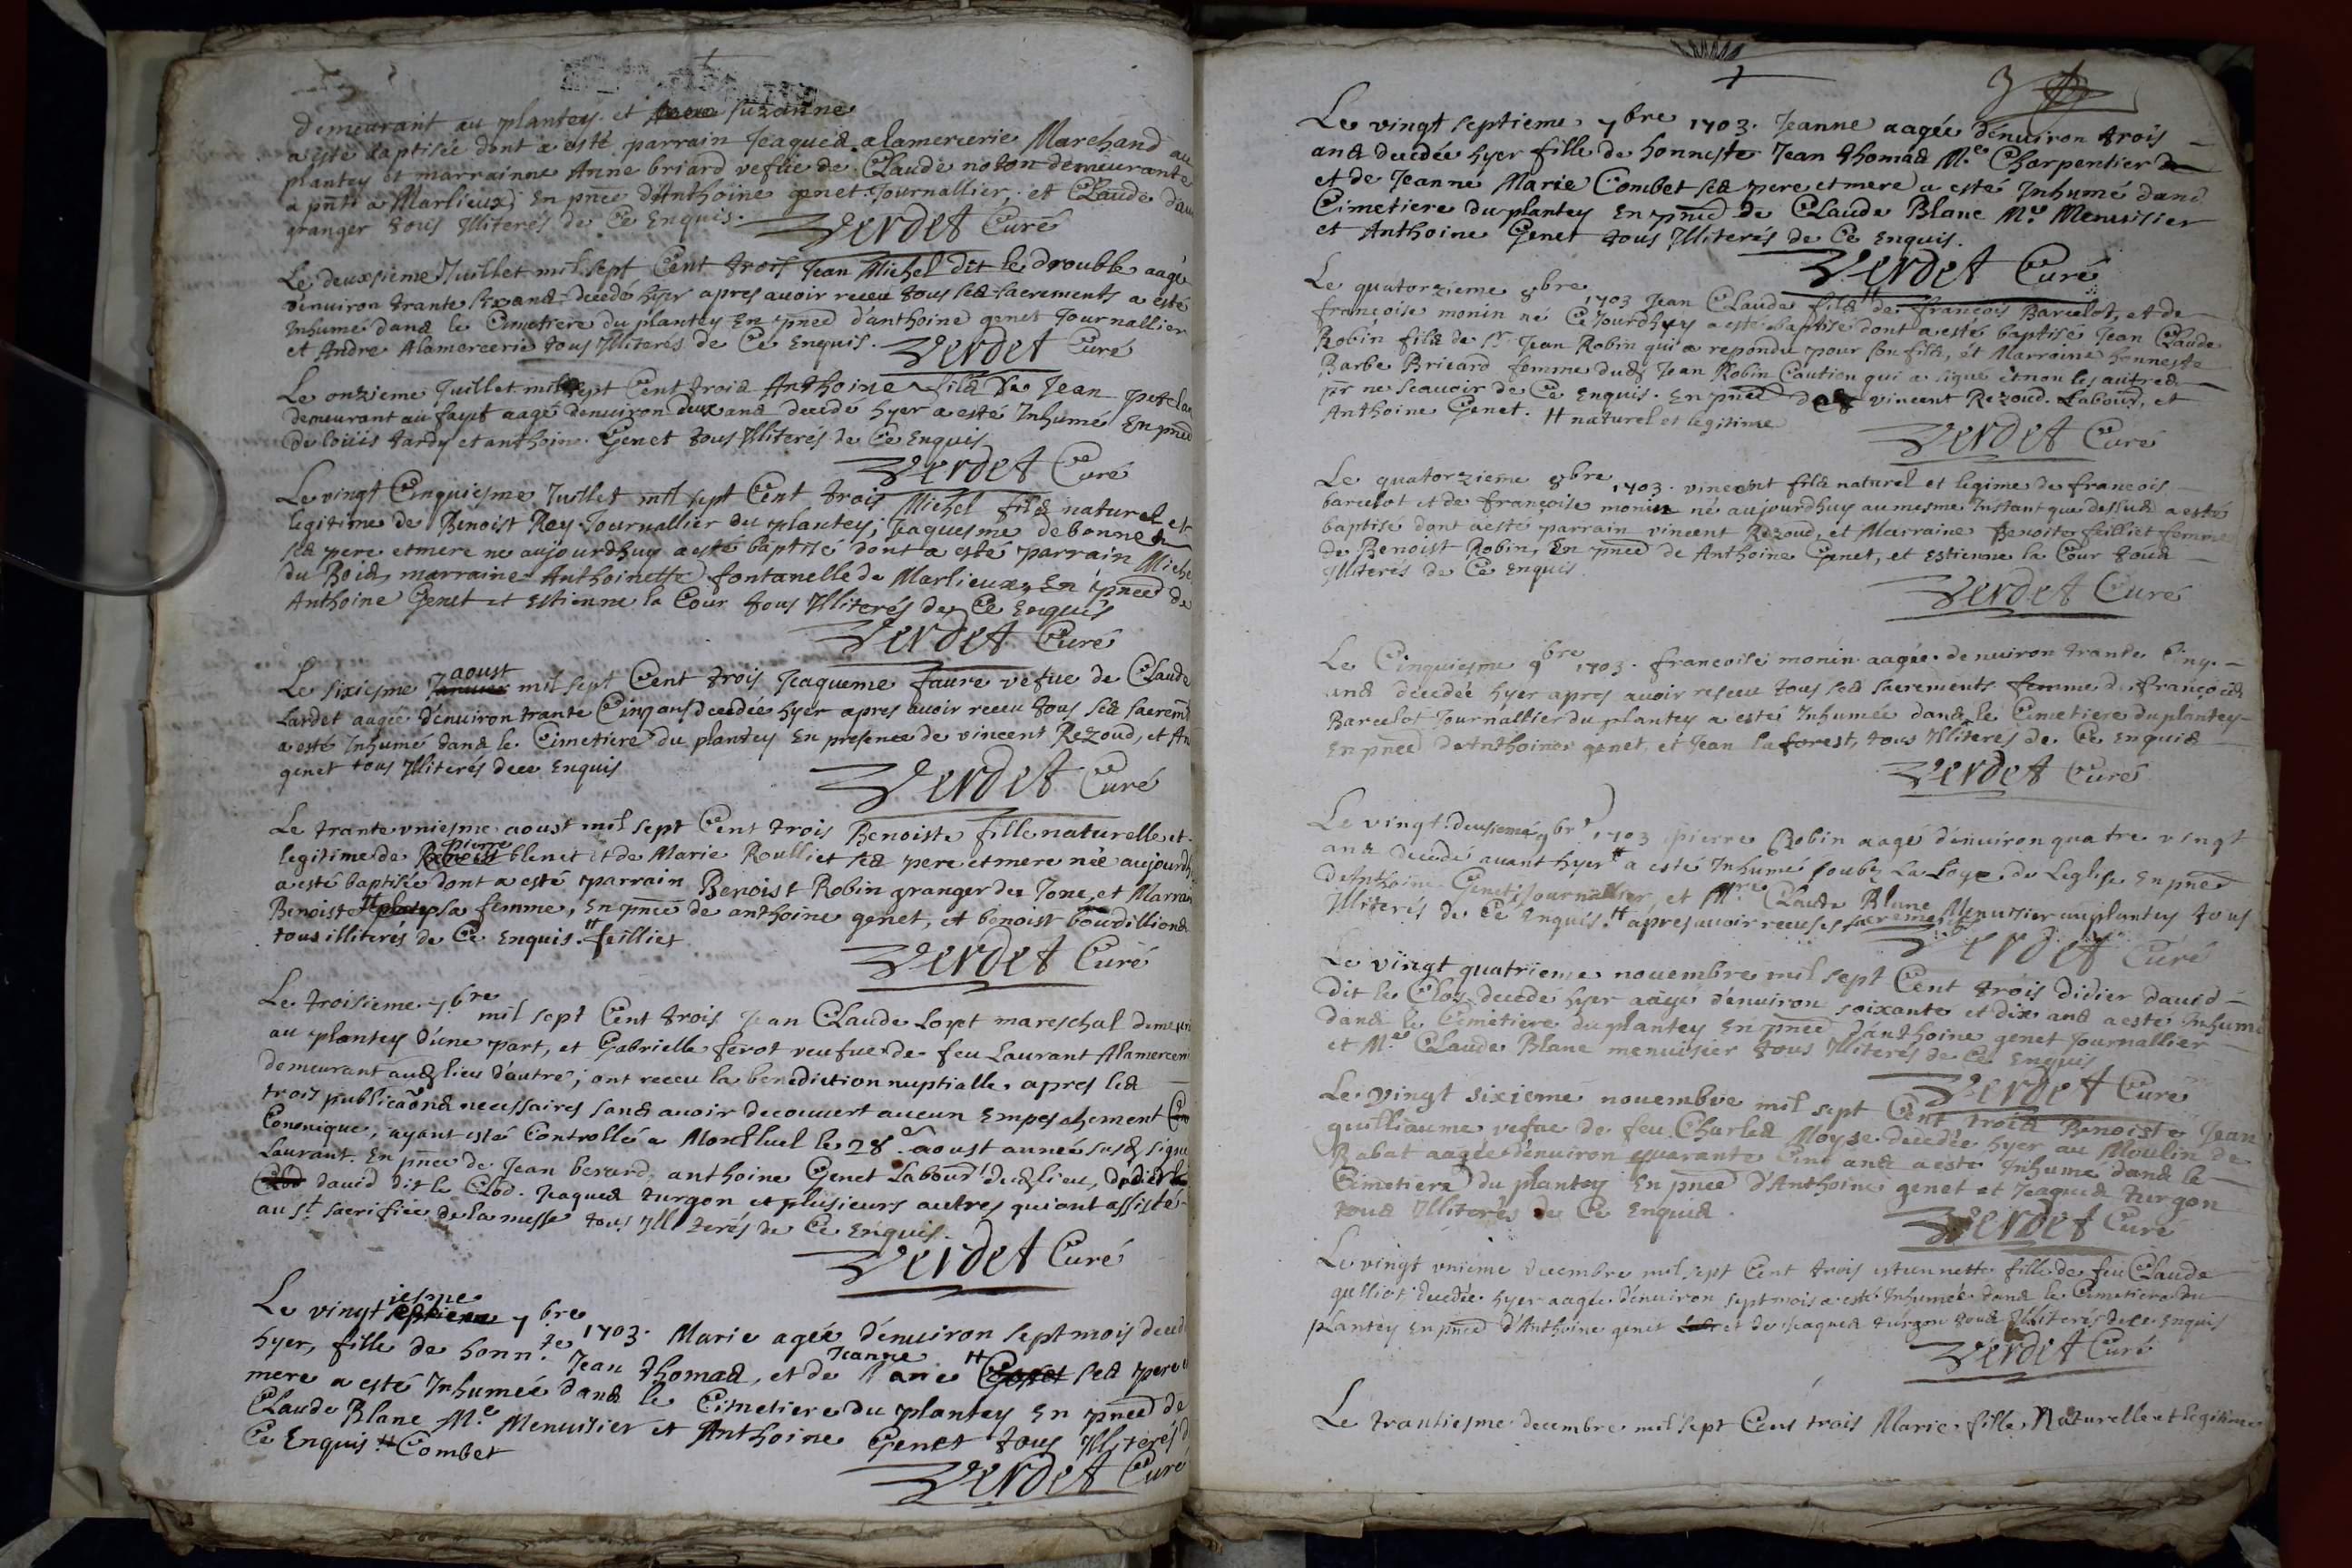 demeurant au plantey et suzanne
a esté baptisée dont a esté parrain Jaques alamercerie Marchand au
plantey et marrainne Anne briard vefue de Claude noton demeurante
a pnt a Marlieux; En pnce d'Anthoine genet Journallier, et Claude
granger tous Illiterés de Ce Enquis. Verdet Curé
Le deuxsieme Juillet mil sept Cent trois Jean Michel dit le drouble aagé
d'enuiron trante six ans decedé hyer apres auoir receu tous ses sacrements a esté
Inhumé dans le Cimetiere du plantey En pnce d'anthoine genet Journallier
et Andre Alamercerie tous Illiterés de Ce Enquis. Verdet Curé
Le onzieme Juillet mil sept Cent trois Anthoine fils de Jean
demeurant au fayet aagé d'enuiron deux ans decedé hyer a esté Inhumé En pnce
de loüis tardy et anthoine Genet tous Illiterés de Ce Enquis
Verdet Curé
Le vingt Cinquiesme Juillet mil sept Cent trois Michel fils naturel et
legitime de Benoist Rey Journallier du plantey; Jaquesme debonne
ses pere et mere ne aujourdhuy a esté baptisé dont a esté parrain Michel
du Bois, marraine Anthoinette fontanelle de Marlieux, En pnce de
Anthoine Genet et Estienne la Cour tous Illiterés de Ce Enquis
Verdet Curé
Le sixiesme aoust mil sept Cent trois Jaqueme faure vefue de Claude
Lardet aagée d'enuiron trante Cinq ans decedée hyer apres auoir receu tous ses sacremts
a esté Inhumé dans le Cimetiere du plantey En presence de vincent Rezoud, et An
genet tous Illiterés dece Enquis
Verdet Curé
Le trante vniesme aoust mil sept Cent trois Benoiste fille naturelle et
legitime de pierre blenet et de Marie Roulliet ses pere et mere née aujourdh
a esté baptisée dont a esté parrain Benoist Robin granger des Jone, et Marrain
Benoiste # sa femme, En pnce de anthoine genet, et benoist bourdillions
tous illiterés de Ce Enquis. # feilliet
Verdet Curé
Le troisieme 7bre mil sept Cent trois Jean Claude Loyet mareschal demeur
au plantey d'une part, et Gabrielle ferot veufue de feu Laurant Alamercerie
demeurant audt lieu d'autre; ont receu la benediction nuptialle apres les
trois publicaõns necessaires sans auoir decouuert aucun Empeschement
Cononique, ayant esté Controllé a Montluel le 28e aoust année susdt signé
Laurant. En pnce de Jean berard, anthoine Genet Labourd dudt lieu, didier
dauid dit le Clod. Jaques turgon et plusieurs autres qui ont assisté
au st sacrifice de la messe tous Illiterés de Ce Enquis.
Verdet Curé
Le vingtiesme 7bre 1703. Marie agée d'enuiron sept mois deced
hyer, fille de honnte Jean thomas, et de Jeanne Marie # ses pere et
mere a esté Inhumée dans le Cimetiere du plantey En pnce de
Claude Blanc Me Menuisier et Anthoine Genet tous Illiterés d
Ce Enquis # Combet
Verdet Curé
3
Le vingt septieme 7bre 1703. Jeanne aagée d'enuiron trois
ans decedée hyer fille de honneste Jean thomas Me Charpentier
et de Jeanne Marie Combet ses pere et mere a esté Inhumé dans
Cimetiere du plantey En pnce de Claude Blanc Me Menuisier
et Anthoine Genet tous Illiterés de Ce Enquis.
Verdet Curé
Le quatorzieme 8bre 1703 Jean Claude fils # de françois Barcelot, et de
françoise monin né Ce Jourdhuy a esté baptisé dont a esté baptisé Jean Claude
Robin fils de sr Jean Robin qui a repondu pour son fils, et Marraine honneste
Barbe Bricard femme dudt Jean Robin Caution qui a signé et non les autres
pr ne scauoir de Ce Enquis. En pnce de vincent Rezoud. Labourd, et
Anthoine Genet. # naturel et legitime
Verdet Curé
Le quatorzieme 8bre 1703. vincent fils naturel et legime de francois
barcelot et de françoise monin né aujourdhuy au mesme Instant que dessus a esté
baptisé dont a esté parrain vincent Rezoud, et Marraine Benoite feilliet femme
de Benoist Robin, En pnce de Anthoine Genet, et Estienne la Cour tous
Illiterés de Ce Enquis
Verdet Curé
Le Cinquiesme 9bre 1703. francoise monin aagée d'enuiron trante Cinq
ans decedée hyer apres auoir receu tous ses sacrements femme de françois
Barcelot Journallier du plantey a esté Inhumée dans le Cimetiere du plantey
En pnce de Anthoine genet, et Jean la forest, tous Illiteres de Ce Enquis
Verdet Curé
Le vingt deusieme 9bre 1703 pierre Robin aagé d'enuiron quatre vingt
ans decedé auant hyer # a esté Inhumé soubz La Loge de Leglise En pnce
d'Anthoine Genet Journallier, et Mre Claude Blanc Menuisier au plantey tous
Illiterés de Ce Enquis. # apres auoir receu ses sacrements
Verdet Curé
Le vingt quatrieme nouembre mil sept Cent trois didier dauid
dit le Clos decedé hyer aagé d'enuiron soixante et dix ans a esté Inhumé
dans le Cimetiere du plantey En pnce d'anthoine genet Journallier
et Me Claude Blanc menuisier tous Illiterés de Ce Enquis
Verdet Curé
Le vingt sixieme nouembre mil sept Cent trois Benoiste Jean
guilliaume vefue de feu Charles Moyse decedée hyer au Moulin de
Rabat aagée d'enuiron quarante Cinq ans a esté Inhumé dans le
Cimetiere du plantey En pnce d'Anthoine genet et Jaques turgon
tous Illiterés de Ce Enquis.
Verdet Curé
Le vingt vnieme decembre mil sept Cent trois estiennette fille de feu Claude
gulliot decedée hyer aagée d'enuiron sept mois a esté Inhumée dans le Cimetiere du
plantey En pnce d'Anthoine genet et de Jaques turgon tous Illiterés dece Enquis
Verdet Curé
Le trantiesme decembre mil sept Cent trois Marie fille Naturelle et legitime